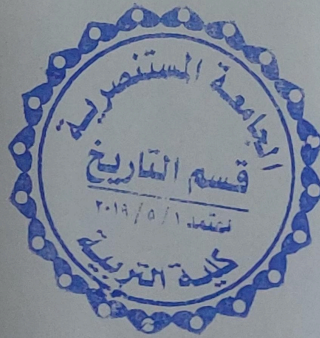 الجامعة المستنصرية
قسم التاريخ
نعتمد ٢٠١٩/٥/١
كلية التربية